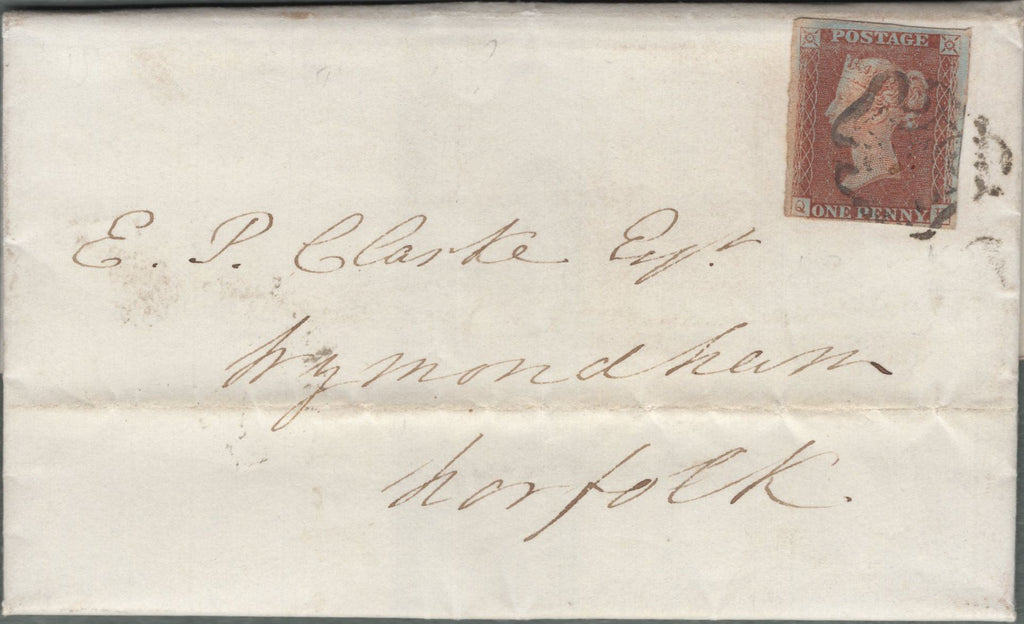 POSTAGE
Q ONE PENNY
E. P. Clarke Esqr.
Wymondham
Norfolk.